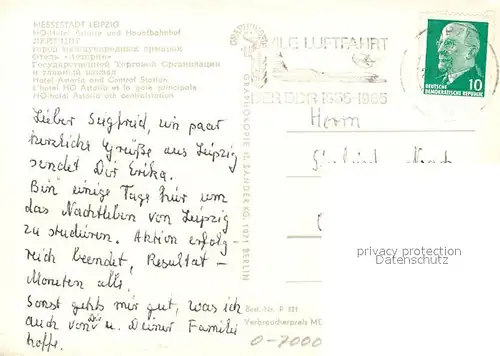 MESSESTADT LEIPZIG
HO-Hotel Astoria und Hauptbahnhof
ЛЕЙПЦИГ
город международных ярмарок
Отель «Астория»
Государственной Торговой Организации
и главный вокзал
Hotel Astoria and Central Station
L'hotel HO Astoria et la gare principale
HO-hotel Astoria och centralstation
Lieber Siegfried, ein paar
herzliche Grüße aus Leipzig
sendet Dir Erika.
Bin einige Tage hier um
das Nachtleben von Leipzig
zu studieren. Aktion erfolg-
reich beendet, Resultat -
Moneten alle.
Sonst gehts mir gut, was ich
auch von Dir u. Deiner Familie
hoffe.
GRAPHOKOPIE H. SANDER KG, 1071 BERLIN
LUFTFAHRT
DER DDR 1955-1965
10
DEUTSCHE
DEMOKRATISCHE REPUBLIK
Herrn
privacy protection
Datenschutz
Best.-Nr. R 321
Verbraucherpreis M
0-7000